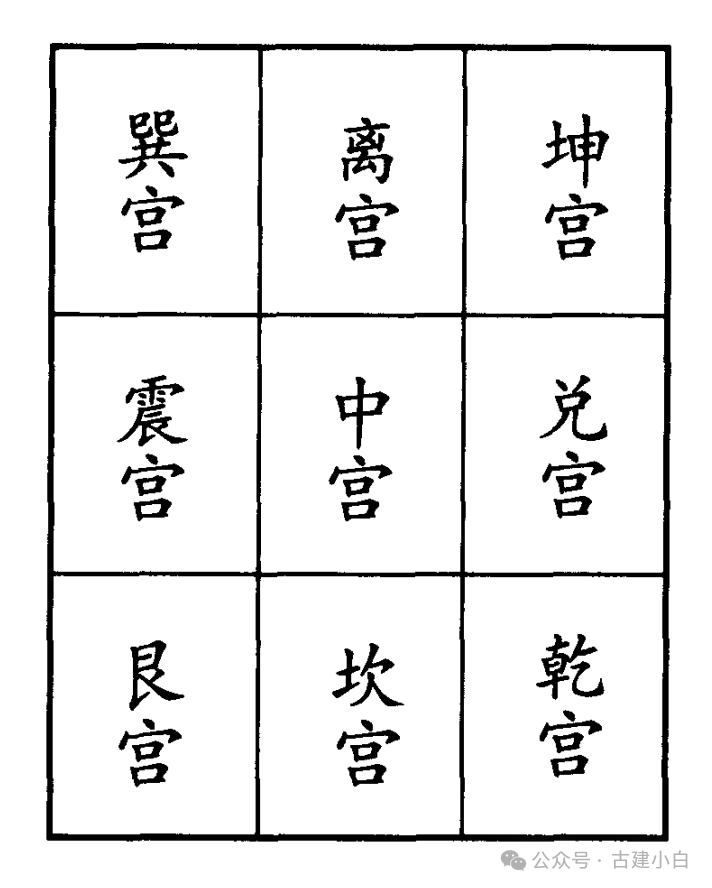 巽宫
离宫
坤宫
震宫
中宫
兑宫
艮宫
坎宫
乾宫
公众号 · 古建小白